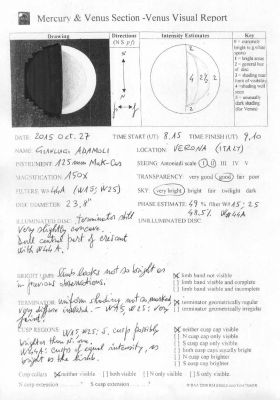 Mercury & Venus Section - Venus Visual Report
Drawing
Directions
(N S p f)
Intensity Estimates
Key
0 = extremely bright
1 = bright areas
2 = general hue of disc
3 = shading near limit of visibility
4 = shading well seen
5 = unusually dark shading (for Venus)
2
4 2½ 2
2
DATE: 2015 Oct. 27 TIME START (UT) 8.15 TIME FINISH (UT) 9,10
NAME: GIANLUIGI ADAMOLI LOCATION: VERONA (ITALY)
INSTRUMENT: 125 mm Mak-Cas SEEING: Antoniadi scale I II III IV V
MAGNIFICATION: 150X TRANSPARENCY: very good good fair poor
FILTERS: W44A (W15; W25) SKY: very bright bright fair twilight dark
DISK DIAMETER: 23,8" PHASE ESTIMATE: 49 % (for W15, 25
48.5% W44A
ILLUMINATED DISC: terminator still
very slightly concave.
Dull central part of crescent
with W44A.
UNILLUMINED DISC:
BRIGHT LIMB: limb looks not so bright as
in previous observations.
limb band not visible
[ ] limb band visible and complete
[ ] limb band visible and incomplete
TERMINATOR: uniform shading not so marked,
very diffuse inward. W44A, W25; W15
faint.
terminator geometrically regular
[ ] terminator geometrically irregular
CUSP REGIONS: W15, W25: S. cusp possibly
brighter than N. one.
W44A: cusps of equal intensity, as
bright as the limb.
neither cusp cap visible
[ ] N cusp cap only visible
[ ] S cusp cap only visible
[ ] both cusp caps equally bright
[ ] N cusp cap brighter
[ ] S cusp cap brighter
Cusp collars neither visible [ ] both visible [ ] N only visible [ ] S only visible
N cusp extension .....° S cusp extension .....°